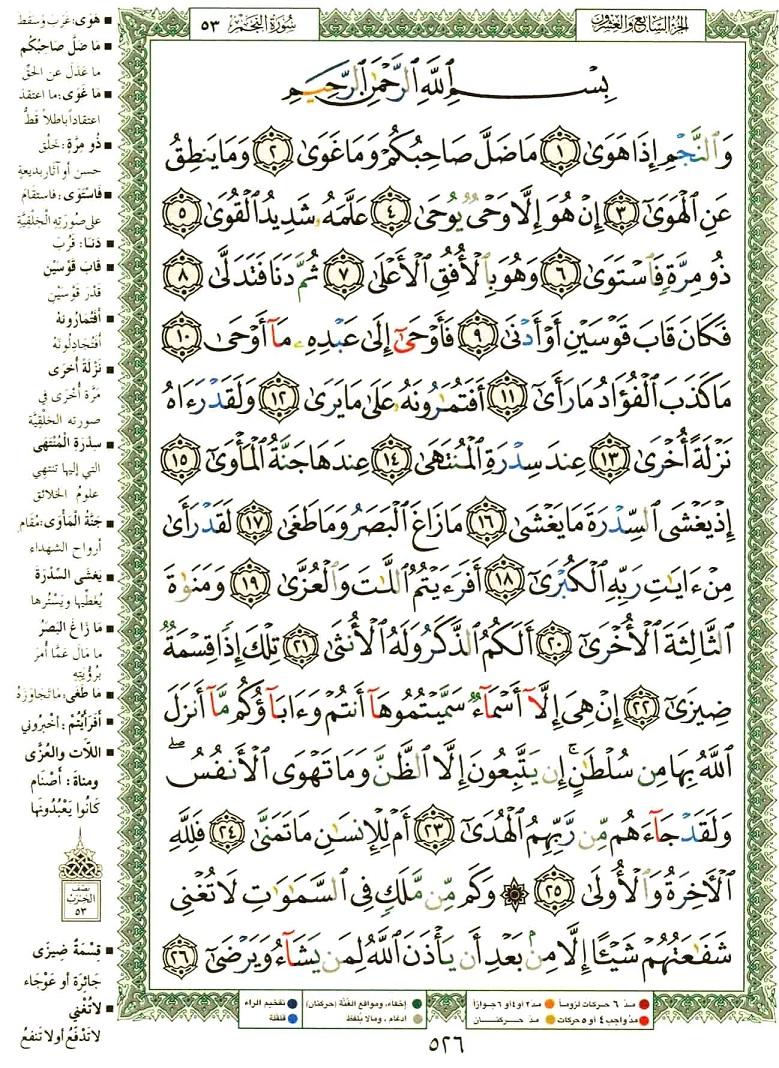 الجزء السابع والعشرون
سورة النجم ٥٣
بِسْمِ اللَّهِ الرَّحْمَٰنِ الرَّحِيمِ
وَالنَّجْمِ إِذَا هَوَىٰ ١ مَا ضَلَّ صَاحِبُكُمْ وَمَا غَوَىٰ ٢ وَمَا يَنطِقُ
عَنِ الْهَوَىٰ ٣ إِنْ هُوَ إِلَّا وَحْيٌ يُوحَىٰ ٤ عَلَّمَهُ شَدِيدُ الْقُوَىٰ ٥
ذُو مِرَّةٍ فَاسْتَوَىٰ ٦ وَهُوَ بِالْأُفُقِ الْأَعْلَىٰ ٧ ثُمَّ دَنَا فَتَدَلَّىٰ ٨
فَكَانَ قَابَ قَوْسَيْنِ أَوْ أَدْنَىٰ ٩ فَأَوْحَىٰ إِلَىٰ عَبْدِهِ مَا أَوْحَىٰ ١٠
مَا كَذَبَ الْفُؤَادُ مَا رَأَىٰ ١١ أَفَتُمَارُونَهُ عَلَىٰ مَا يَرَىٰ ١٢ وَلَقَدْ رَءَاهُ
نَزْلَةً أُخْرَىٰ ١٣ عِندَ سِدْرَةِ الْمُنتَهَىٰ ١٤ عِندَهَا جَنَّةُ الْمَأْوَىٰ ١٥
إِذْ يَغْشَى السِّدْرَةَ مَا يَغْشَىٰ ١٦ مَا زَاغَ الْبَصَرُ وَمَا طَغَىٰ ١٧ لَقَدْ رَأَىٰ
مِنْ ءَايَاتِ رَبِّهِ الْكُبْرَىٰ ١٨ أَفَرَءَيْتُمُ اللَّاتَ وَالْعُزَّىٰ ١٩ وَمَنَوٰةَ
الثَّالِثَةَ الْأُخْرَىٰ ٢٠ أَلَكُمُ الذَّكَرُ وَلَهُ الْأُنثَىٰ ٢١ تِلْكَ إِذًا قِسْمَةٌ
ضِيزَىٰ ٢٢ إِنْ هِيَ إِلَّا أَسْمَاءٌ سَمَّيْتُمُوهَا أَنتُمْ وَءَابَاؤُكُم مَّا أَنزَلَ
اللَّهُ بِهَا مِن سُلْطَانٍ ۚ إِن يَتَّبِعُونَ إِلَّا الظَّنَّ وَمَا تَهْوَى الْأَنفُسُ ۖ
وَلَقَدْ جَاءَهُم مِّن رَّبِّهِمُ الْهُدَىٰ ٢٣ أَمْ لِلْإِنسَانِ مَا تَمَنَّىٰ ٢٤ فَلِلَّهِ
الْآخِرَةُ وَالْأُولَىٰ ٢٥ ۞ وَكَم مِّن مَّلَكٍ فِي السَّمَاوَاتِ لَا تُغْنِي
شَفَاعَتُهُمْ شَيْئًا إِلَّا مِن بَعْدِ أَن يَأْذَنَ اللَّهُ لِمَن يَشَاءُ وَيَرْضَىٰ ٢٦
هَوَى: غَرَبَ وَسَقَط
مَا ضَلَّ صَاحِبُكُم
ما عَدَلَ عن الحقّ
مَا غَوَى: ما اعتقد
اعتقاداً باطلاً قطُّ
ذُو مِرَّةٍ: خَلْق
حسن أو آثار بديعة
فَاسْتَوَى: فاستقام
على صورته الخَلْقيَّة
دَنا: قَرُبَ
قَابَ قَوْسَيْن
قَدْرَ قَوْسَيْن
أفَتُمَارُونَهُ
أفتُجَادِلُونَهُ
نَزْلَةً أُخْرَى
مَرَّة أُخرى في
صورته الخلقيَّة
سِدْرَةِ المُنْتَهَى
التي إليها تنتهي
علومُ الخلائق
جَنَّةُ المَأْوَى: مُقَام
أرواح الشهداء
يَغشى السِّدْرَة
يُغَطِّيها ويَسْتُرها
مَا زَاغَ البَصَرُ
ما مَالَ عَمَّا أُمِرَ
بِرُؤْيَتِهِ
مَا طَغَى: مَا تَجاوَزَهُ
أَفَرَأَيْتُمْ: أَخبروني
اللَّات والعُزَّى
ومناة: أصْنَام
كَانُوا يَعْبُدُونَها
نصف
الحزب
٥٣
قِسْمَةٌ ضِيزَى
جَائِرَة أو عَوْجَاء
لا تُغْنِي
لا تَدْفَعُ أو لا تَنفَعُ
مدّ ٦ حركات لزوماً
مدّ ٢ أو ٤ أو ٦ جوازاً
مدّ واجب ٤ أو ٥ حركات
مدّ حركتان
إخفاء، ومواقع الغُنَّة (حركتان)
ادغام، ومالا يُلفَظ
تفخيم الراء
قلقلة
٥٢٦